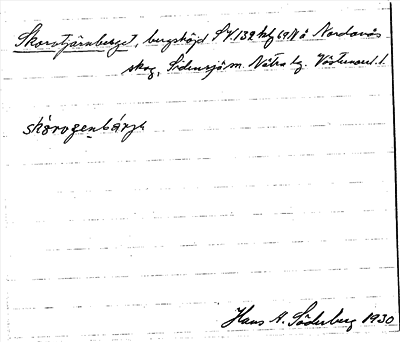 Skorstjärnberget, bergshöjd SV.132 kbf 1918 å Nordanås
skog, Sidensjö sn. Nätra hg. Västernorrl. l.
skörɷgenbárjɐ
Hans A. Söderberg 1930